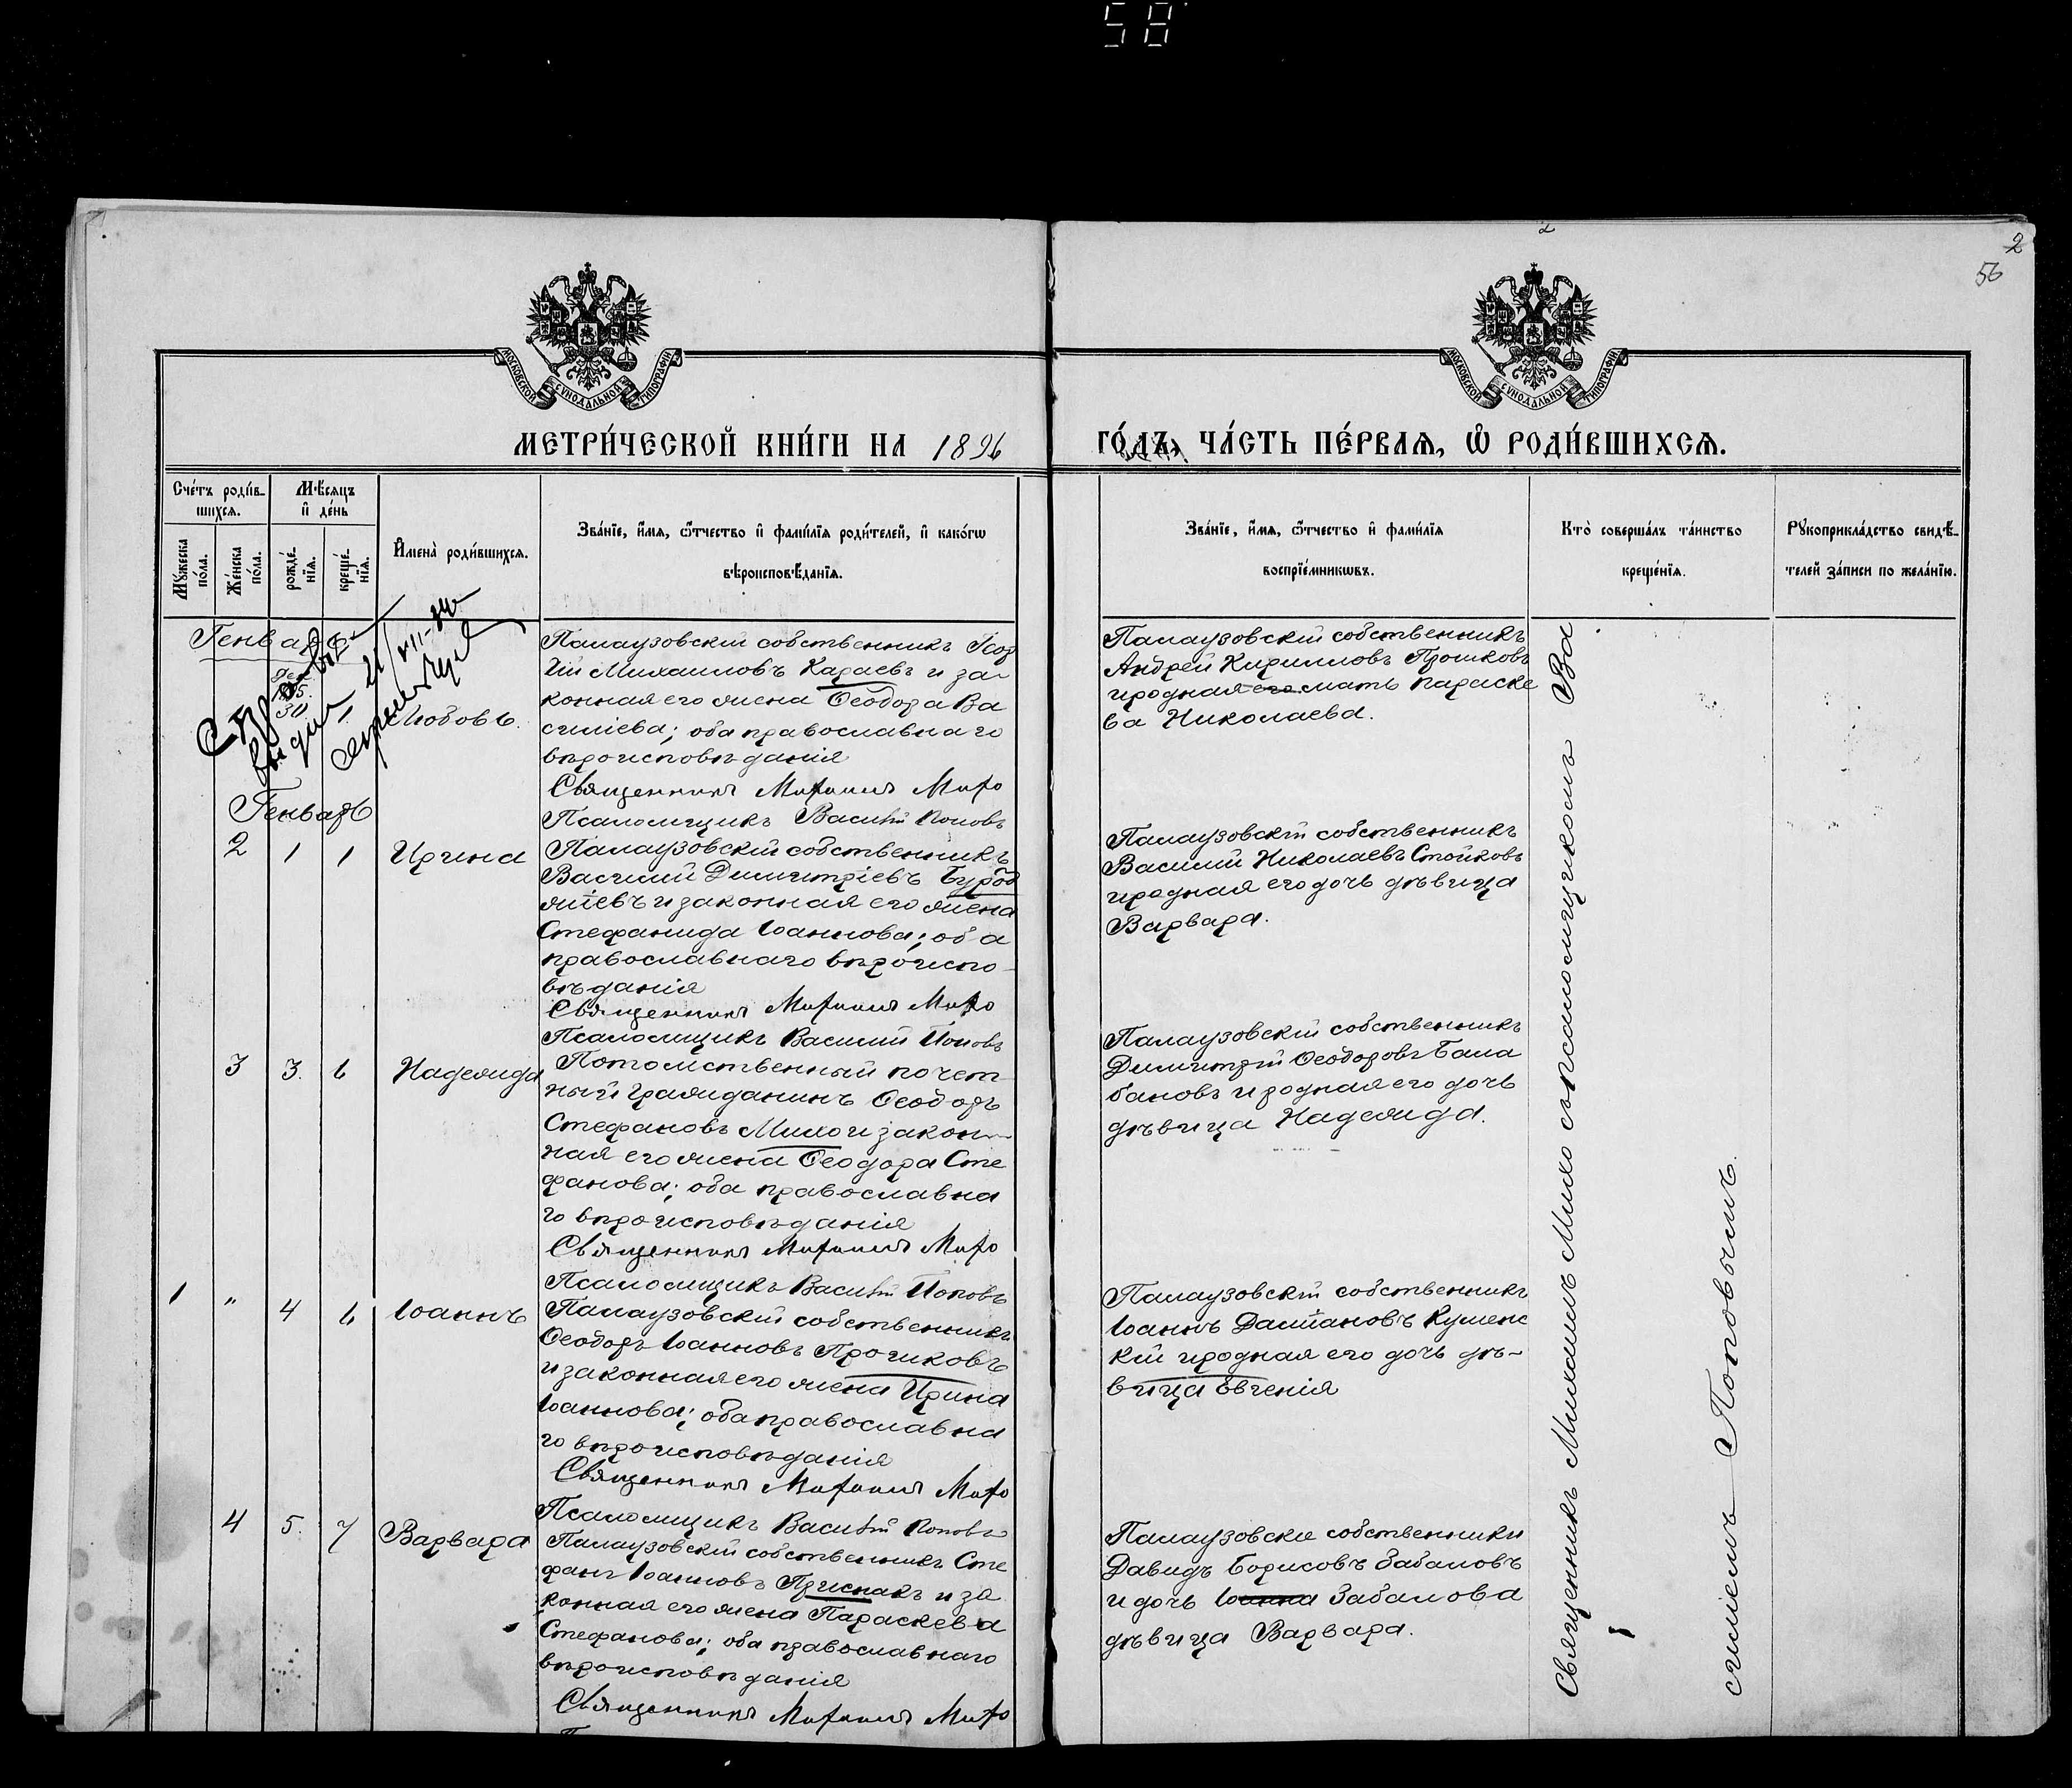 58
2
2
56
МОСКОВСКОЙ СѴНОДАЛЬНОЙ ТИПОГРАФІИ
МОСКОВСКОЙ СѴНОДАЛЬНОЙ ТИПОГРАФІИ
МЕТРИ́ЧЕСКОЙ КНИ́ГИ НА 1896
ГО́ДЪ, ЧА́СТЬ ПЕ́РВАѦ, Ѡ҆ РОДИ́ВШИХСѦ.
Сче́тъ роди́в-
шихсѧ.
Мꙋжеска
по́ла.
Же́нска
по́ла.
Мѣ́сѧцъ
и҆ де́нь
рожде́-
нїѧ.
креще́-
нїѧ.
И҆мена̀ роди́вшихсѧ.
Зва́нїе, и҆́мѧ, ѻ҆́тчество и҆ фами́лїѧ роди́телей, и҆ како́гѡ
вѣроисповѣ́данїѧ.
Зва́нїе, и҆́мѧ, ѻ҆́тчество и҆ фами́лїѧ
воспрїе́мникѡвъ.
Кто̀ соверша́лъ та́инство
креще́нїѧ.
Рꙋкоприкла́дство свидѣ́-
телей за́писи по жела́нїю.
Генварь
30
1
Любовь.
Палаузовскій собственникъ Геор
гій Михаиловъ Караевъ и за-
конная его жена Ѳеодора Ва
силіева; оба православнаго
вѣроисповѣданія
Священникъ Михаилъ Михо
Псаломщикъ Василій Поповъ
Палаузовскій собственникъ
Андрей Кирилловъ Прошковъ
и родная его мать Параске
ва Николаева.
Генварь
2 1 1 Ирина
Палаузовскій собственникъ
Василій Димитріевъ Бурод
жіевъ и законная его жена
Стефанида Іоаннова; оба
православнаго вѣроиспо-
вѣданія
Священникъ Михаилъ Михо
Псаломщикъ Василий Поповъ
Палаузовскій собственникъ
Василий Николаевъ Стойковъ
и родная его дочь дѣвица
Варвара.
3 3. 6 Надежда
Потомственный почет-
ный гражданинъ Ѳеодоръ
Стефановъ Михо и закон-
ная его жена Ѳеодора Сте
фанова; оба православна
го вѣроисповѣданія
Священникъ Михаилъ Михо
Псаломщикъ Василій Поповъ
Палаузовскій собственникъ
Димитрій Ѳеодоровъ Бала
бановъ и родная его дочь
дѣвица Надежда.
1 " 4 6 Іоаннъ
Палаузовскій собственникъ
Ѳеодоръ Іоанновъ Прочиковъ
и законная его жена Ирина
Іоаннова; оба православна
го вѣроисповѣданія
Священникъ Михаилъ Михо
Псаломщикъ Василій Поповъ
Палаузовскій собственникъ
Іоаннъ Даміановъ Куленс
кій и родная его дочь дѣ-
вица Евгенія
4 5. 7 Варвара
Палаузовскій собственникъ Сте
фанъ Іоанновъ Приснакъ и за
конная его жена Параскева
Стефанова; оба православнаго
вѣроисповѣданія
Священникъ Михаилъ Михо
Палаузовскіе собственники
Давидъ Борисовъ Забаловъ
и дочь Забалова
дѣвица Варвара.
Священникъ Михаилъ Михо съ псаломщикомъ Ва
силіемъ Поповымъ.